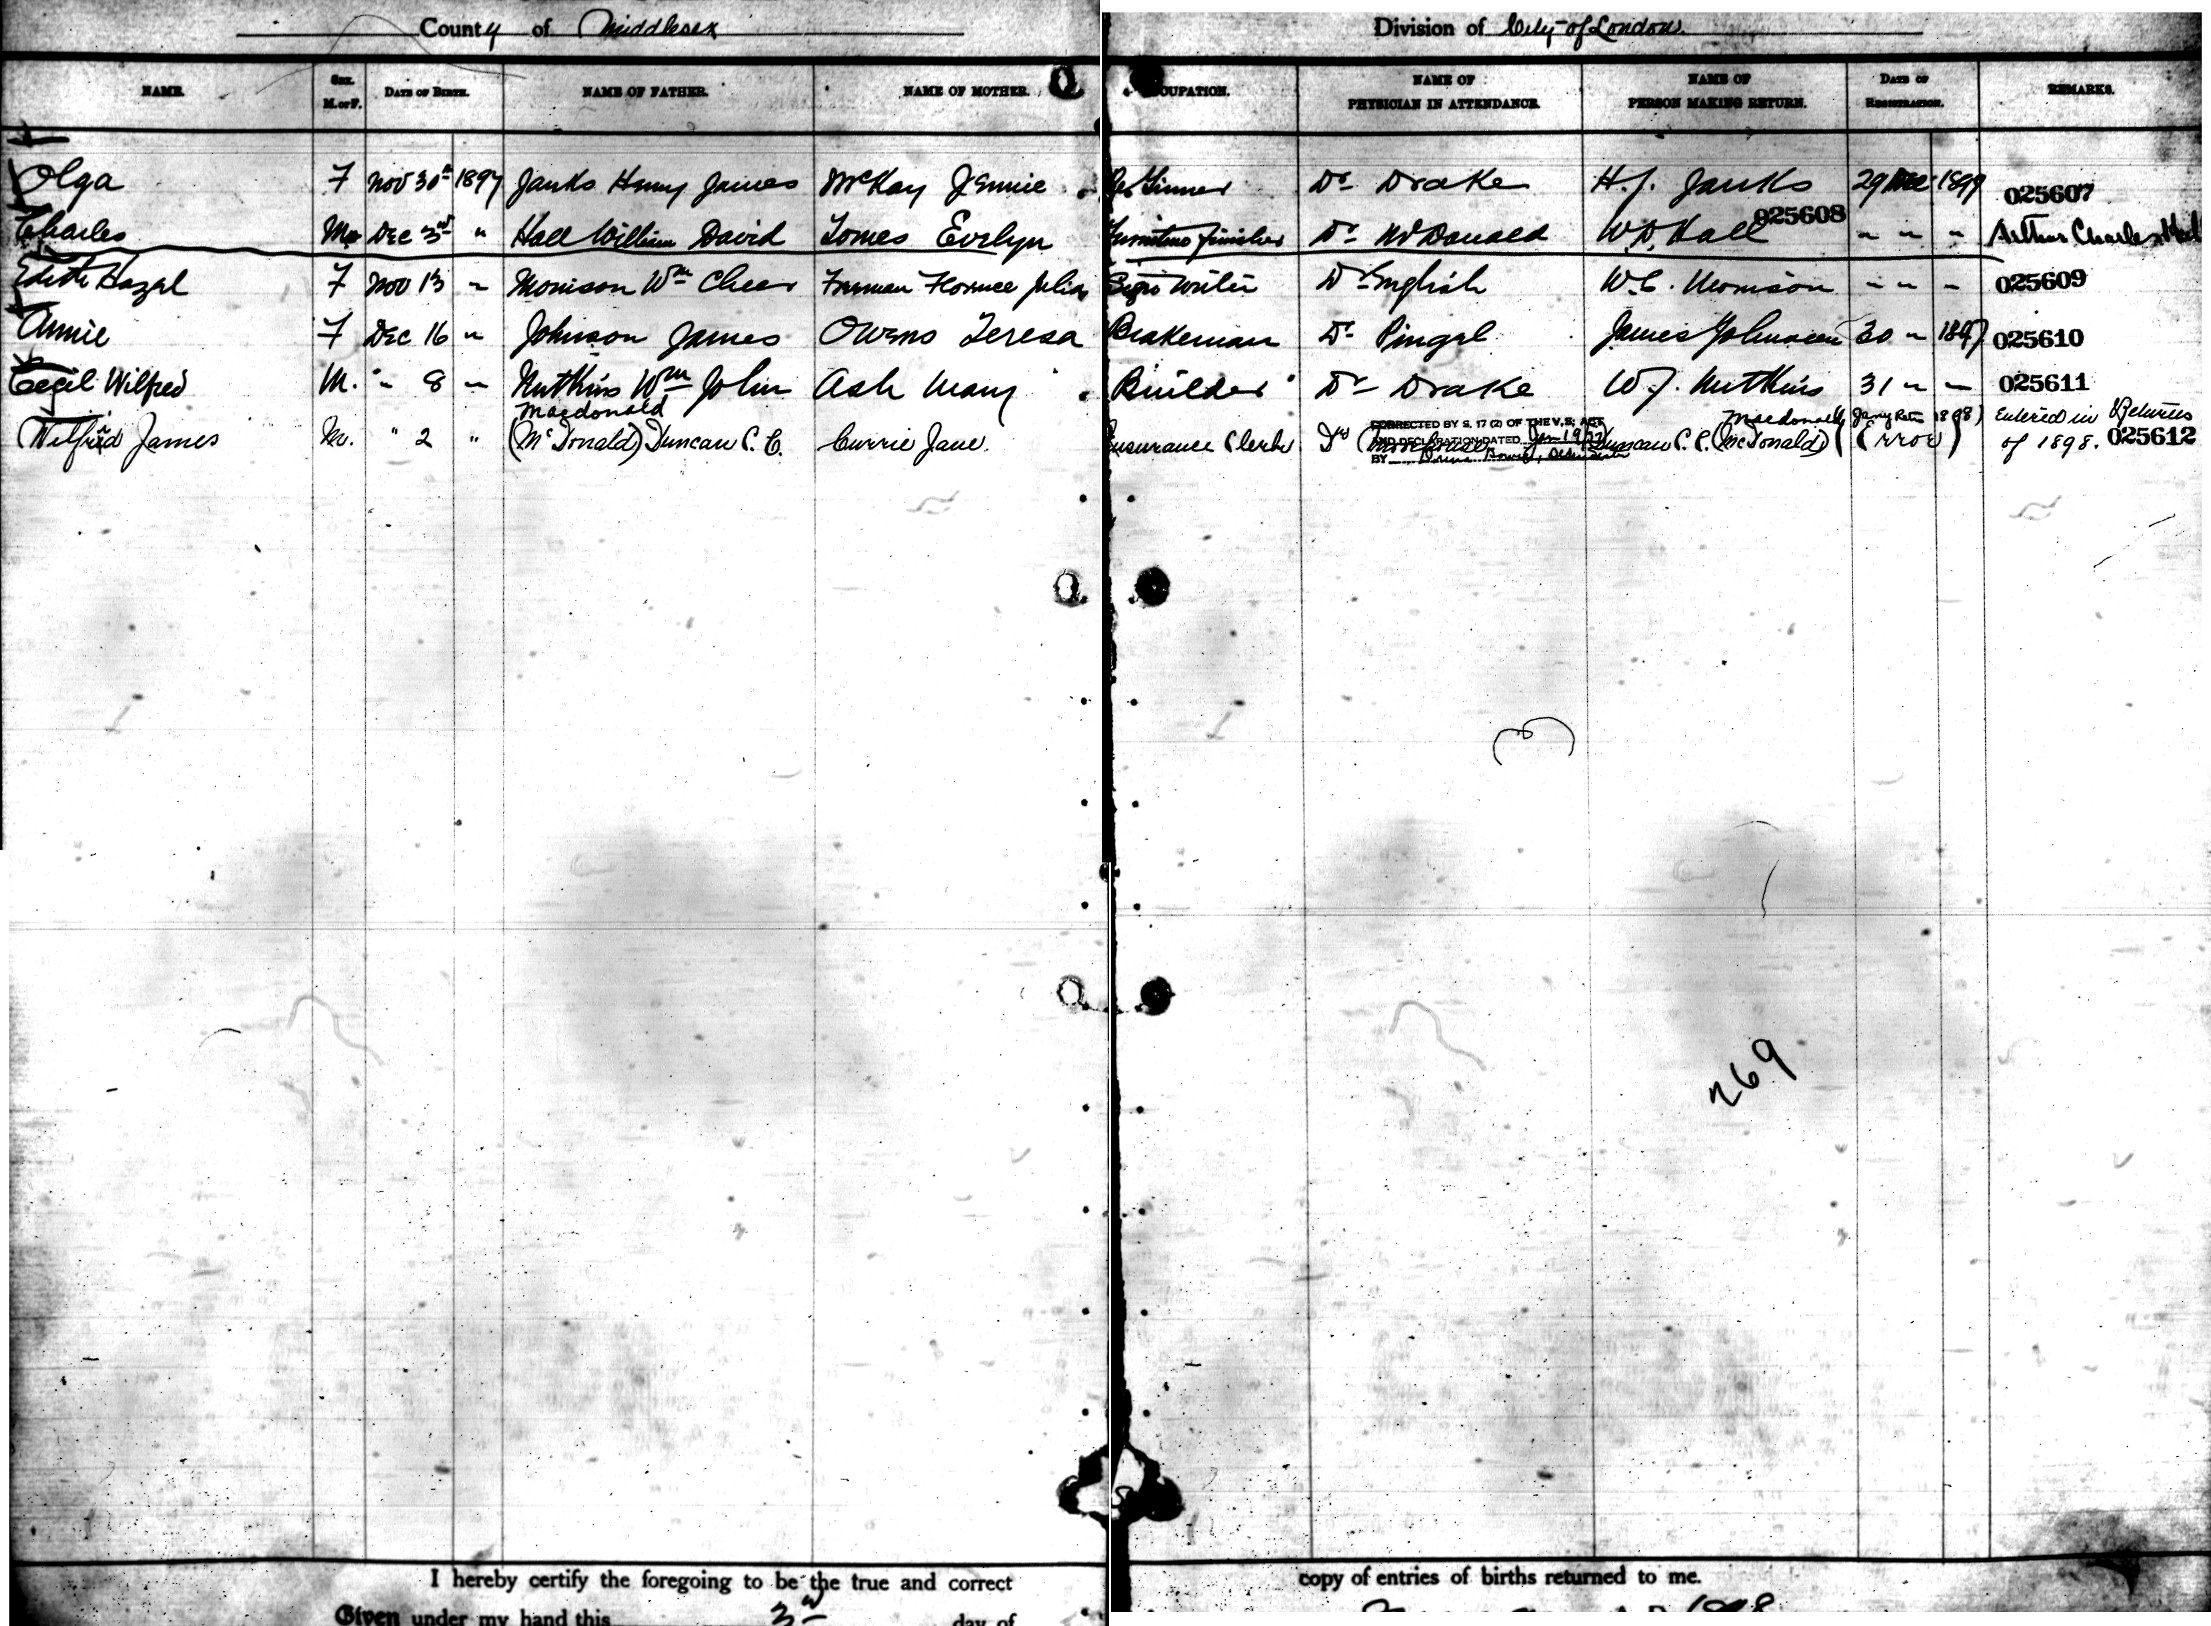 County of Middlesex Division of City of London
NAME. SEX. M. or F. DATE OF BIRTH. NAME OF FATHER. NAME OF MOTHER. OCCUPATION. NAME OF PHYSICIAN IN ATTENDANCE. NAME OF PERSON MAKING RETURN. DATE OF REGISTRATION. REMARKS.
Olga F Nov 30th 1897 Janks Henry James McKay Jennie Tinner Dr Drake H. J. Janks 29 Dec 1897 025607
Charles M Dec 3rd " Hall William David Tomes Evelyn Furniture finisher Dr McDonald W. D. Hall 025608 " " " Arthur Charles Hall
Edith Hazel F Nov 13 " Morrison Wm Florence Julia Sign Writer Dr English W. C. Morrison " " " 025609
Annie F Dec 16 " Johnson James Owens Teresa Brakeman Dr Pingel James Johnson 30 " 1897 025610
Cecil Wilfred M. " 8 " Nutkins Wm John Ash Mary Builder Dr Drake W. J. Nutkins 31 " " 025611
Macdonald Macdonald 1898) Entered in Returns
Wilfrid James M. " 2 " (McDonald) Duncan C. C. Currie Jane. Insurance Clerk Duncan C. C. (McDonald) (rror) of 1898. 025612
CORRECTED BY S. 17 (2) OF THE V.S. ACT
AND DECLARATION DATED
BY
269
I hereby certify the foregoing to be the true and correct copy of entries of births returned to me.
Given under my hand this 3rd day of 1898